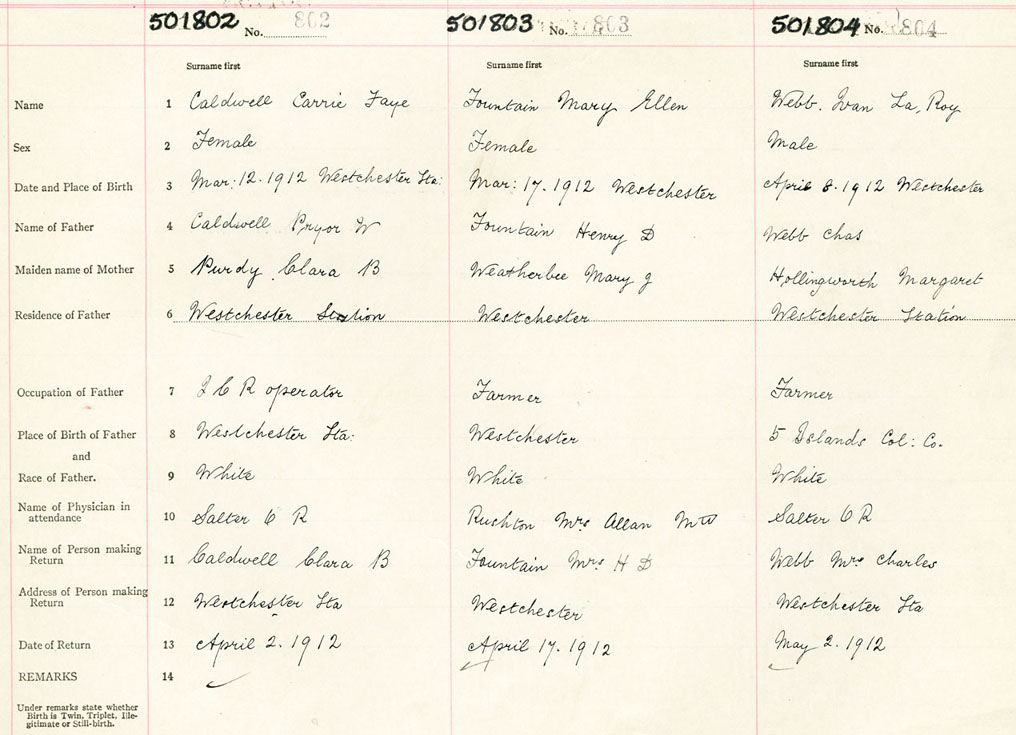 501802 No. 802 501803 No. 803 501804 No. 804
Surname first Surname first Surname first
Name 1 Caldwell Carrie Faye Fountain Mary Ellen Webb. Ivan La, Roy
Sex 2 Female Female Male
Date and Place of Birth 3 Mar: 12. 1912 Westchester Sta: Mar: 17. 1912 Westchester April 8. 1912 Westchester
Name of Father 4 Caldwell Pryor W Fountain Henry D Webb Chas
Maiden name of Mother 5 Purdy Clara B Weatherbee Mary J Hollingworth Margaret
Residence of Father 6 Westchester Station Westchester Westchester Station
Occupation of Father 7 I C R operator Farmer Farmer
Place of Birth of Father 8 Westchester Sta: Westchester 5 Islands Col: Co.
and
Race of Father. 9 White White White
Name of Physician in
attendance 10 Salter C R Rushton Mrs Allan MW Salter C R
Name of Person making
Return 11 Caldwell Clara B Fountain Mrs H D Webb Mrs Charles
Address of Person making
Return 12 Westchester Sta Westchester Westchester Sta
Date of Return 13 April 2. 1912 April 17. 1912 May 2. 1912
REMARKS 14
Under remarks state whether
Birth is Twin, Triplet, Ille-
gitimate or Still-birth.